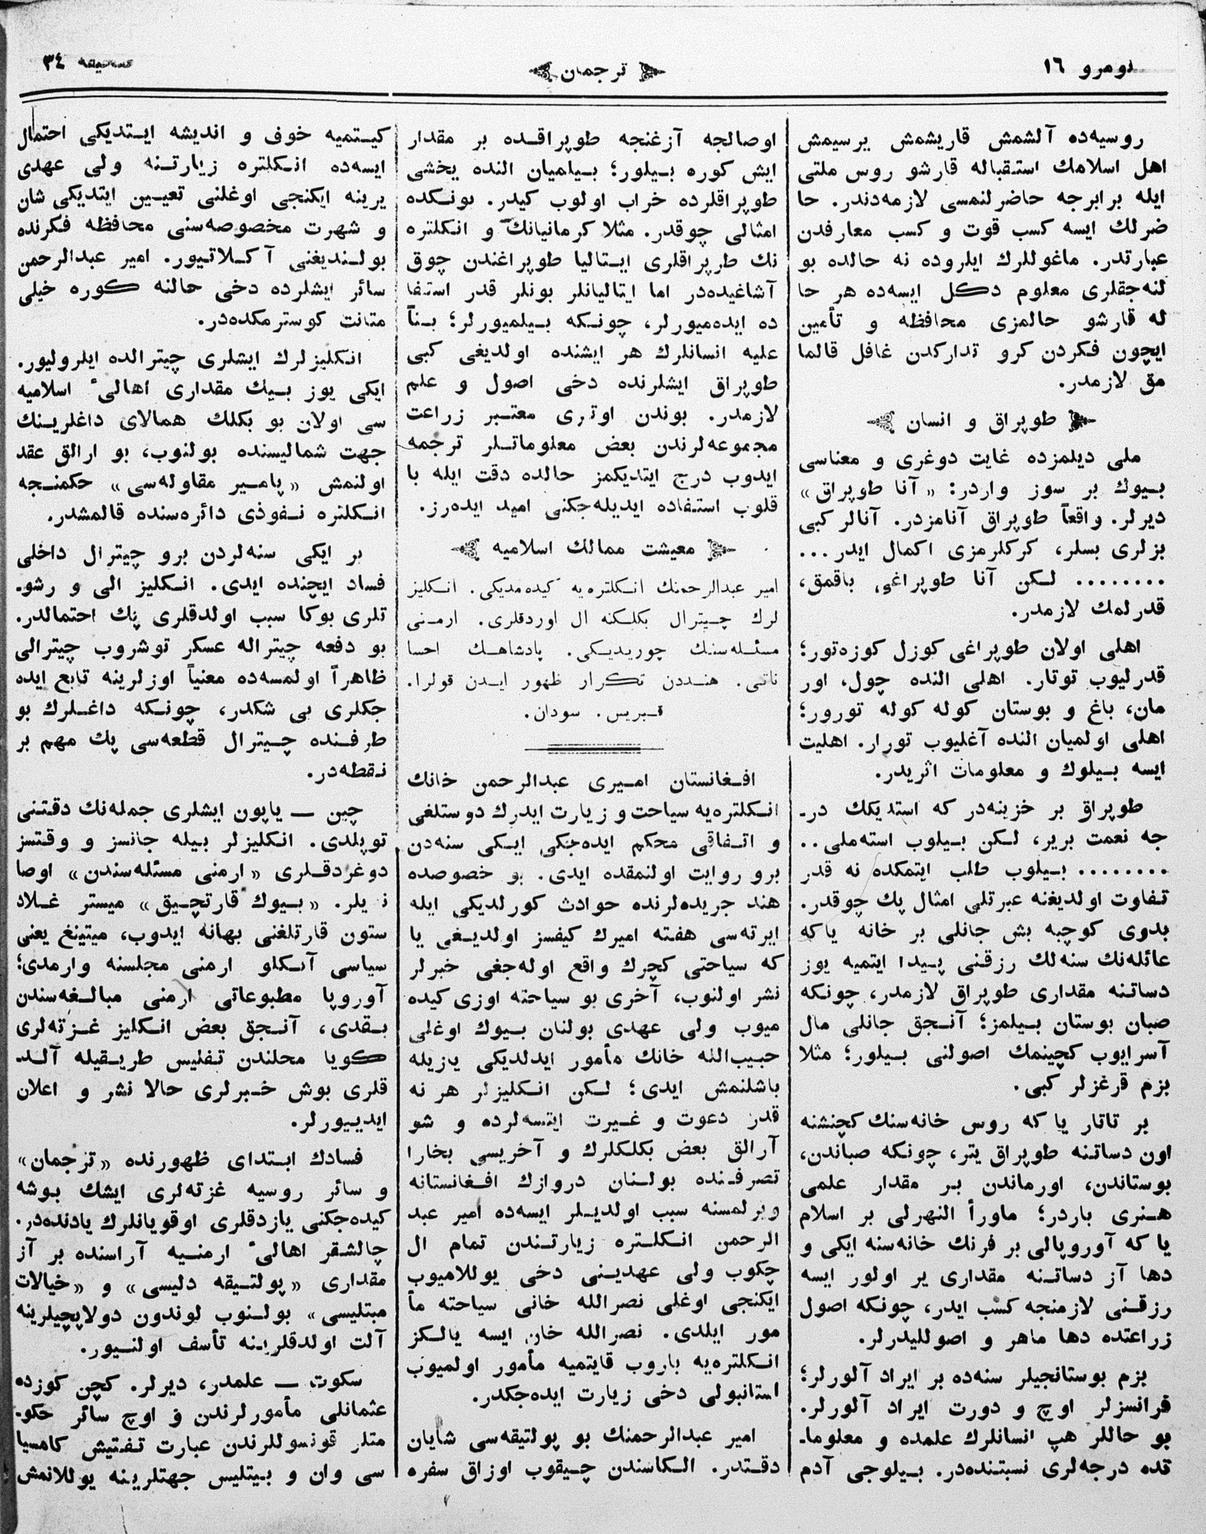 نومرو ١٦
ترجمان
صحیفه ٣٤
روسیه‌ده آلشمش قاریشمش یرسیمش
اهل اسلامك استقباله قارشو روس ملتی
ایله برابرجه حاضرلنمسی لازمه‌دندر. حا
ضرلك ایسه كسب قوت و كسب معارفدن
عبارتدر. ماغوللرك ایلروده نه حالده بو
لنه‌جقلری معلوم دكل ایسه‌ده هر حا
له قارشو حالمزی محافظه و تأمین
ایچون فكردن كرو تداركدن غافل قالما
مق لازمدر.
طوپراق و انسان
ملی دیلمزده غایت دوغری و معناسی
بیوك بر سوز واردر: «آنا طوپراق»
دیرلر. واقعاً طوپراق آنامزدر. آنالر كبی
بزلری بسلر، كركلرمزی اكمال ایدر...
........ لكن آنا طوپراغی باقمق،
قدرلمك لازمدر.
اهلی اولان طوپراغی كوزل كوزه‌تور؛
قدرلیوب توتار. اهلی النده چول، اور
مان، باغ و بوستان كوله كوله تورور؛
اهلی اولمیان النده آغلیوب تورار. اهلیت
ایسه بیلوك و معلومات اثریدر.
طوپراق بر خزینه‌در كه استدیكك در-
جه نعمت بریر، لكن بیلوب استه‌ملی..
........ بیلوب طلب ایتمكده نه قدر
تفاوت اولدیغنه عبرتلی امثال پك چوقدر.
بدوی كوچبه بش جانلی بر خانه یاكه
عائله‌نك سنه‌لك رزقنی پیدا ایتمیه یوز
دساتنه مقداری طوپراق لازمدر، چونكه
صبان بوستان بیلمز؛ آنجق جانلی مال
آسرایوب كچینمك اصولنی بیلور؛ مثلا
بزم قرغزلر كبی.
بر تاتار یا كه روس خانه‌سنك كچنشنه
اون دساتنه طوپراق یتر، چونكه صباندن،
بوستاندن، اورماندن بر مقدار علمی
هنری باردر؛ ماورأ النهرلی بر اسلام
یا كه آوروپالی بر فرنك خانه‌سنه ایكی و
دها آز دساتنه مقداری یر اولور ایسه
رزقنی لازمنجه كسب ایدر، چونكه اصول
زراعتده دها ماهر و اصوللیدرلر.
بزم بوستانجیلر سنه‌ده بر ایراد آلورلر؛
فرانسزلر اوچ و دورت ایراد آلورلر.
بو حاللر هپ انسانلرك علمده و معلوما-
تده درجه‌لری نسبتنده‌در. بیلوجی آدم
اوصالجه آزغنجه طوپراقده بر مقدار
ایش كوره بیلور؛ بیلمیان النده یخشی
طوپراقلرده خراب اولوب كیدر. بونكده
امثالی چوقدر. مثلا كرمانیانك و انكلتره
نك طرپراقلری ایتالیا طوپراغندن چوق
آشاغیده‌در اما ایتالیانلر بونلر قدر استفا
ده ایده‌میورلر، چونكه بیلمیورلر؛ بنأ
علیه انسانلرك هر ایشنده اولدیغی كبی
طوپراق ایشلرنده دخی اصول و علم
لازمدر. بوندن اوتری معتبر زراعت
مجموعه‌لرندن بعض معلوماتلر ترجمه
ایدوب درج ایتدیكمز حالده دقت ایله با
قلوب استفاده ایدیله‌جكنی امید ایده‌رز.
معیشت ممالك اسلامیه
امیر عبدالرحمنك انكلتره‌یه كیده‌مدیكی. انكلیز
لرك چیترال بكلكنه ال اوردقلری. ارمنی
مسئله‌سنك چوریدیكی. پادشاهك احسا
ناتی. هنددن تكرار ظهور ایدن قولرا.
قبریس. سودان.
افغانستان امیری عبدالرحمن خانك
انكلتره‌یه سیاحت و زیارت ایدرك دوستلغی
و اتفاقی محكم ایده‌جكی ایكی سنه‌دن
برو روایت اولنمقده ایدی. بو خصوصده
هند جریده‌لرنده حوادث كورلدیكی ایله
ایرته‌سی هفته امیرك كیفسز اولدیغی یا
كه سیاحتی كچرك واقع اوله‌جغی خبرلر
نشر اولنوب، آخری بو سیاحته اوزی كیده
میوب ولی عهدی بولنان بیوك اوغلی
حبیب‌الله خانك مأمور ایدلدیكی یازیله
باشلنمش ایدی؛ لكن انكلیزلر هر نه
قدر دعوت و غیرت ایتسه‌لرده و شو
آرالق بعض بكلكلرك و آخریسی بخارا
تصرفنده بولنان دروازك افغانستانه
ویرلمسنه سبب اولدیلر ایسه‌ده امیر عبد
الرحمن انكلتره زیارتندن تمام ال
چكوب ولی عهدینی دخی یوللامیوب
ایكنجی اوغلی نصرالله خانی سیاحته مأ
مور ایلدی. نصرالله خان ایسه یالكز
انكلتره‌یه باروب قایتمیه مأمور اولمیوب
استانبولی دخی زیارت ایده‌جكدر.
امیر عبدالرحمنك بو پولتیقه‌سی شایان
دقتدر. الكاسندن چیقوب اوزاق سفره
كیتمیه خوف و اندیشه ایتدیكی احتمال
ایسه‌ده انكلتره زیارتنه ولی عهدی
یرینه ایكنجی اوغلنی تعیین ایتدیكی شان
و شهرت مخصوصه‌سنی محافظه فكرنده
بولندیغنی آكلاتیور. امیر عبدالرحمن
سائر ایشلرده دخی حالنه كوره خیلی
متانت كوسترمكده‌در.
انكلیزلرك ایشلری چیترالده ایلرولیور.
ایكی یوز بیك مقداری اهالیٔ اسلامیه
سی اولان بو بكلك همالای داغلرینك
جهت شمالیسنده بولنوب، بو ارالق عقد
اولنمش «پامیر مقاوله‌سی» حكمنجه
انكلتره نفوذی دائره‌سنده قالمشدر.
بر ایكی سنه‌لردن برو چیترال داخلی
فساد ایچنده ایدی. انكلیز الی و رشو-
تلری بوكا سبب اولدقلری پك احتمالدر.
بو دفعه چیتراله عسكر توشروب چیترالی
ظاهراً اولمسه‌ده معنیاً اوزلرینه تابع ایده
جكلری بی شكدر، چونكه داغلرك بو
طرفنده چیترال قطعه‌سی پك مهم بر
نقطه‌در.
چین — یاپون ایشلری جمله‌نك دقتنی
توپلدی. انكلیزلر بیله جانسز و وقتسز
دوغردقلری «ارمنی مسئله‌سندن» اوصا
نیلر. «بیوك قارتچیق» میستر غلاد
ستون قارتلغنی بهانه ایدوب، میتینغ یعنی
سیاسی آنكلو ارمنی مجلسنه وارمدی؛
آوروپا مطبوعاتی ارمنی مبالغه‌سندن
بقدی، آنجق بعض انكلیز غزته‌لری
كویا محلندن تفلیس طریقیله آلد-
قلری بوش خبرلری حالا نشر و اعلان
ایدییورلر.
فسادك ابتدای ظهورنده «ترجمان»
و سائر روسیه غزته‌لری ایشك بوشه
كیده‌جكنی یازدقلری اوقویانلرك یادنده‌در.
چالشقر اهالیٔ ارمنیه آراسنده بر آز
مقداری «پولتیقه دلیسی» و «خیالات
مبتلیسی» بولنوب لوندون دولاپچیلرینه
آلت اولدقلرینه تأسف اولنیور.
سكوت — علمدر، دیرلر. كچن كوزده
عثمانلی مأمورلرندن و اوچ سائر حكو-
متلر قونسوللرندن عبارت تفتیش كامسیا
سی وان و بیتلیس جهتلرینه یوللانمش